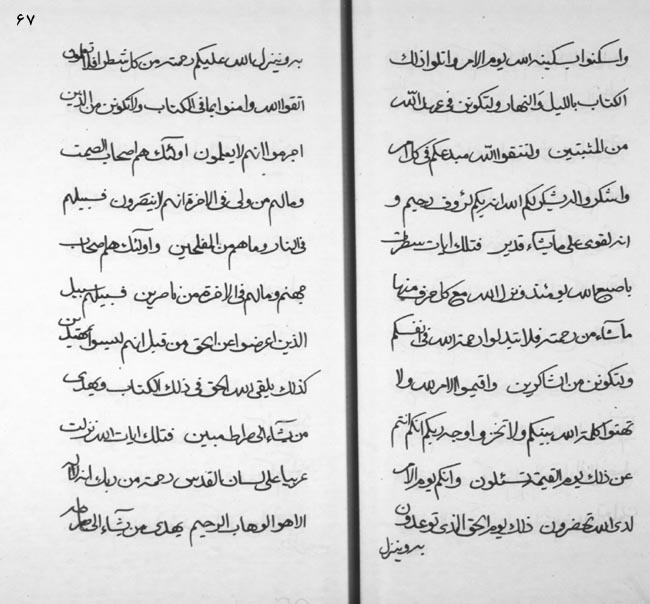 ۶۷
واسكنوا بسكينة الله يوم الامر واتلوا ذلك
الكتاب بالليل والنهار ولتكونن في عهد الله
من المثبتين ولتتقوا الله مبدعكم في كل امر
واشكروا لله ليشكر لكم الله ان ربكم لرؤوف رحيم و
انه لقوى على ما يشاء قدير فتلك ايات سطرت
باصبع الله يومئذ وينزل الله مع كل حرف منها
ما شاء من رحمته فلا تبدلوا رحمة الله في انفسكم
ولتكونن من الشاكرين واقيموا الامر لله ولا
تهنوا كلمة الله بينكم ولا تحزنوا وجه ربكم انكم انتم
عن ذلك يوم القيمة لتسئلون وانكم يوم الامر
لدى الله تحضرون ذلك يوم الحق الذى توعدون
به وينزل
به وينزل الله عليكم رحمته من كل شطر افلا تعلمون
اتقوا الله وامنوا بما في الكتاب ولا تكونن من الذين
اجرموا انهم لا يعلمون اولئك هم اصحاب الصمت
وما لهم من ولى في الاخرة انهم لا ينصرون فسبيلهم
في النار وما هم من المفلحين واولئك هم اصحاب
جهنم وما لهم في الاخرة من ناصرين فسبيلهم سبيل
الذين اعرضوا عن الحق من قبل انهم ليسوا بمهتدين
كذلك يلقى الله الحق في ذلك الكتاب ويهدى
من يشاء الى صراط مبين فتلك ايات الله نزلت
عربيا على لسان القدس رحمة من ربك انه لا اله
الا هو الوهاب الرحيم يهدى من يشاء الى صراطه